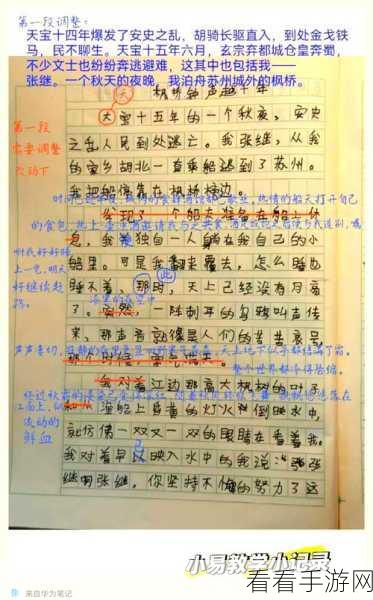 第一段调整：
天宝十四年爆发了安史之乱，胡骑长驱直入，到处金戈铁
马，民不聊生。天宝十五年六月，玄宗弃都城仓皇奔蜀，
不少文士也纷纷奔逃避难，这其中也包括我——
张继。一个秋天的夜晚，我泊舟苏州城外的枫桥。
枫桥钟声越千年
天宝十五年的一个秋夜，安史
第一段
需要调整
之乱人民到处逃亡。我张继，从我
的家乡湖北一直乘船逃到了苏州。
我把船停靠在枫桥桥边。
的食包，热上壶酒邀请我与之共食
包，我独自一人躺在我自己的小
船里。可是我翻来覆去，怎么睡也
上一觉，明天
好继续赶
路。
睡不着，那时，天上已经没有月亮
此
了。突然，一阵刺耳的乌鸦叫声传
来，那声音就像是人们的苦苦哀号
整个世界都冷得悲痛。
我对着江边那高大枫树的叶子
江面上，似
流动的
鲜血
和渔船上昏黄的灯火，倒映水中，
就仿佛一双又一双的眼睛在看着我。
我对着早已映入水中的我说：“张
继啊张继，你坚持不懈的努力了这
小易教学小记录
来自华为笔记
看看手游网